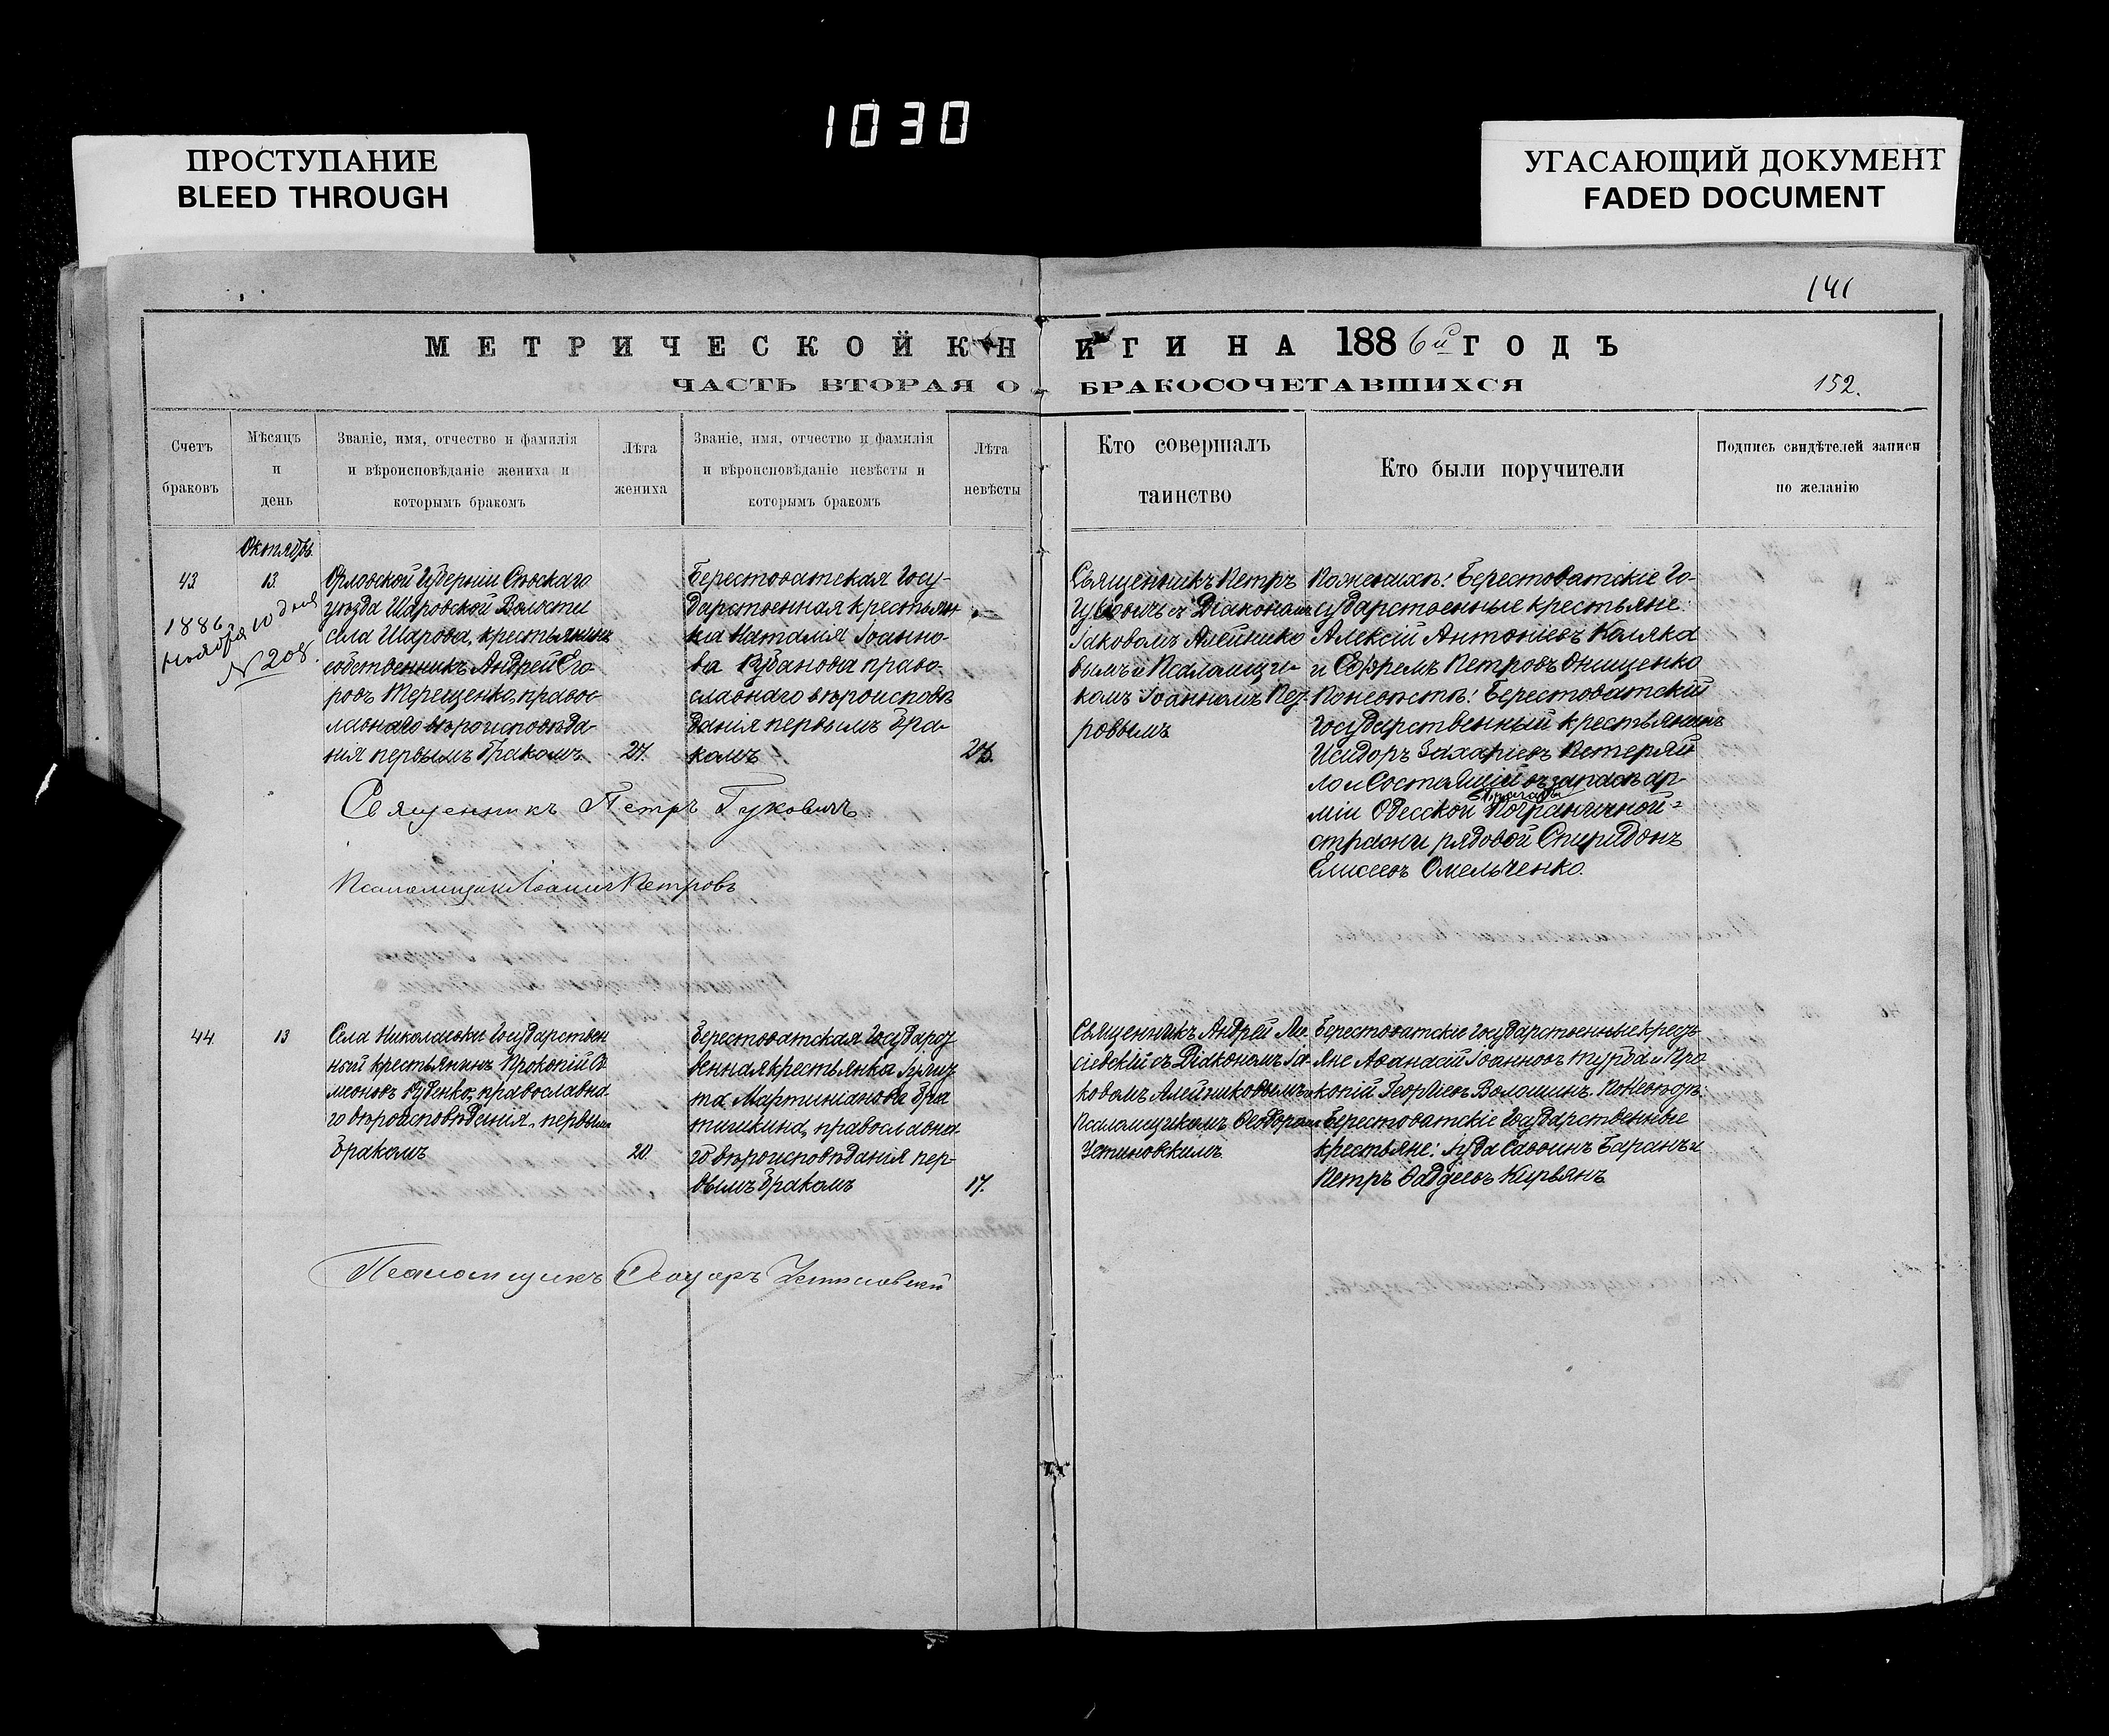 1030
ПРОСТУПАНИЕ
BLEED THROUGH
УГАСАЮЩИЙ ДОКУМЕНТ
FADED DOCUMENT
141
МЕТРИЧЕСКОЙ КНИГИ НА 1886й ГОДЪ
ЧАСТЬ ВТОРАЯ О БРАКОСОЧЕТАВШИХСЯ
152.
Счетъ
браковъ
Мѣсяцъ
и
день
Званіе, имя, отчество и фамилія
и вѣроисповѣданіе жениха и
которымъ бракомъ
Лѣта
жениха
Званіе, имя, отчество и фамилія
и вѣроисповѣданіе невѣсты и
которымъ бракомъ
Лѣта
невѣсты
Кто совершалъ
таинство
Кто были поручители
Подпись свидѣтелей записи
по желанію
43
1886
ноября 10 дня
№ 208.
Октябрь
13.
Орловской Губерніи Сѣвскаго
уѣзда Шаровской Волости
села Шарова, крестьянинъ
собственникъ Андрей Его
ровъ Терещенко, правос
лавнаго вѣроисповѣда
нія первымъ бракомъ.
27.
Берестоватская Госу-
дарственная крестьян
ка Наталія Іоанно-
ва Рубанова право-
славнаго вѣроисповѣ
данія первымъ бра-
комъ
Священникъ Петръ
съ Діакономъ
Іаковомъ Алейнико
вымъ и Псаломщи-
комъ Іоанномъ Пет-
ровымъ
По женихѣ: Берестоватскіе Го-
сударственные крестьяне:
Алексій Антоніевъ Каляка
и Ефремъ Петровъ Онищенко
По невѣстѣ: Берестоватскій
Государственный крестьянинъ
Исидоръ Захаріевъ Петеряй
ло и Состоящій въ запасѣ ар-
бригады
міи Одесской Пограничной
стражи рядовой Спиридонъ
Елисеевъ Омельченко.
Священникъ Петръ
Псаломщикъ Іоаннъ Петровъ
44
13
Села Николаевки Государствен
ный крестьянинъ Прокопій Си
меоновъ Руденко, православна-
го вѣроисповѣданія, первымъ
бракомъ
20.
Берестоватская Государст
венная крестьянка
Мартиніанова
православна-
го вѣроисповѣданія пер-
вымъ бракомъ
17.
Священникъ Андрей
съ Діакономъ Іа-
ковомъ Алейниковымъ и
Псаломщикомъ Ѳеодоромъ
Устиновскимъ
Берестоватскіе Государственные крест-
яне Аѳанасій Іоанновъ Турба и Про
копій Георгіевъ Волошинъ. По невѣстѣ:
Берестоватскіе Государственные
крестьяне: Іуда Саввинъ Баранъ и
Петръ Ѳаддеевъ Кирьянъ
Псаломщикъ Ѳеодоръ Устиновскій